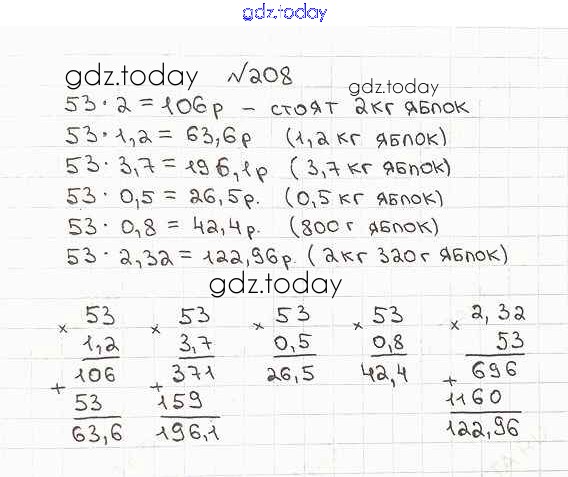 gdz.today
gdz.today №208 gdz.today
53 · 2 = 106р – стоят 2кг яблок
53 · 1,2 = 63,6р (1,2кг яблок)
53 · 3,7 = 196,1р (3,7кг яблок)
53 · 0,5 = 26,5р. (0,5кг яблок)
53 · 0,8 = 42,4р. (800г яблок)
53 · 2,32 = 122,96р. (2кг 320г яблок)
gdz.today
× 53 × 53 × 53 × 53 × 2,32
1,2 3,7 0,5 0,8 53
106 371 26,5 42,4 696
+ 53 + 159 + 1160
63,6 196,1 122,96